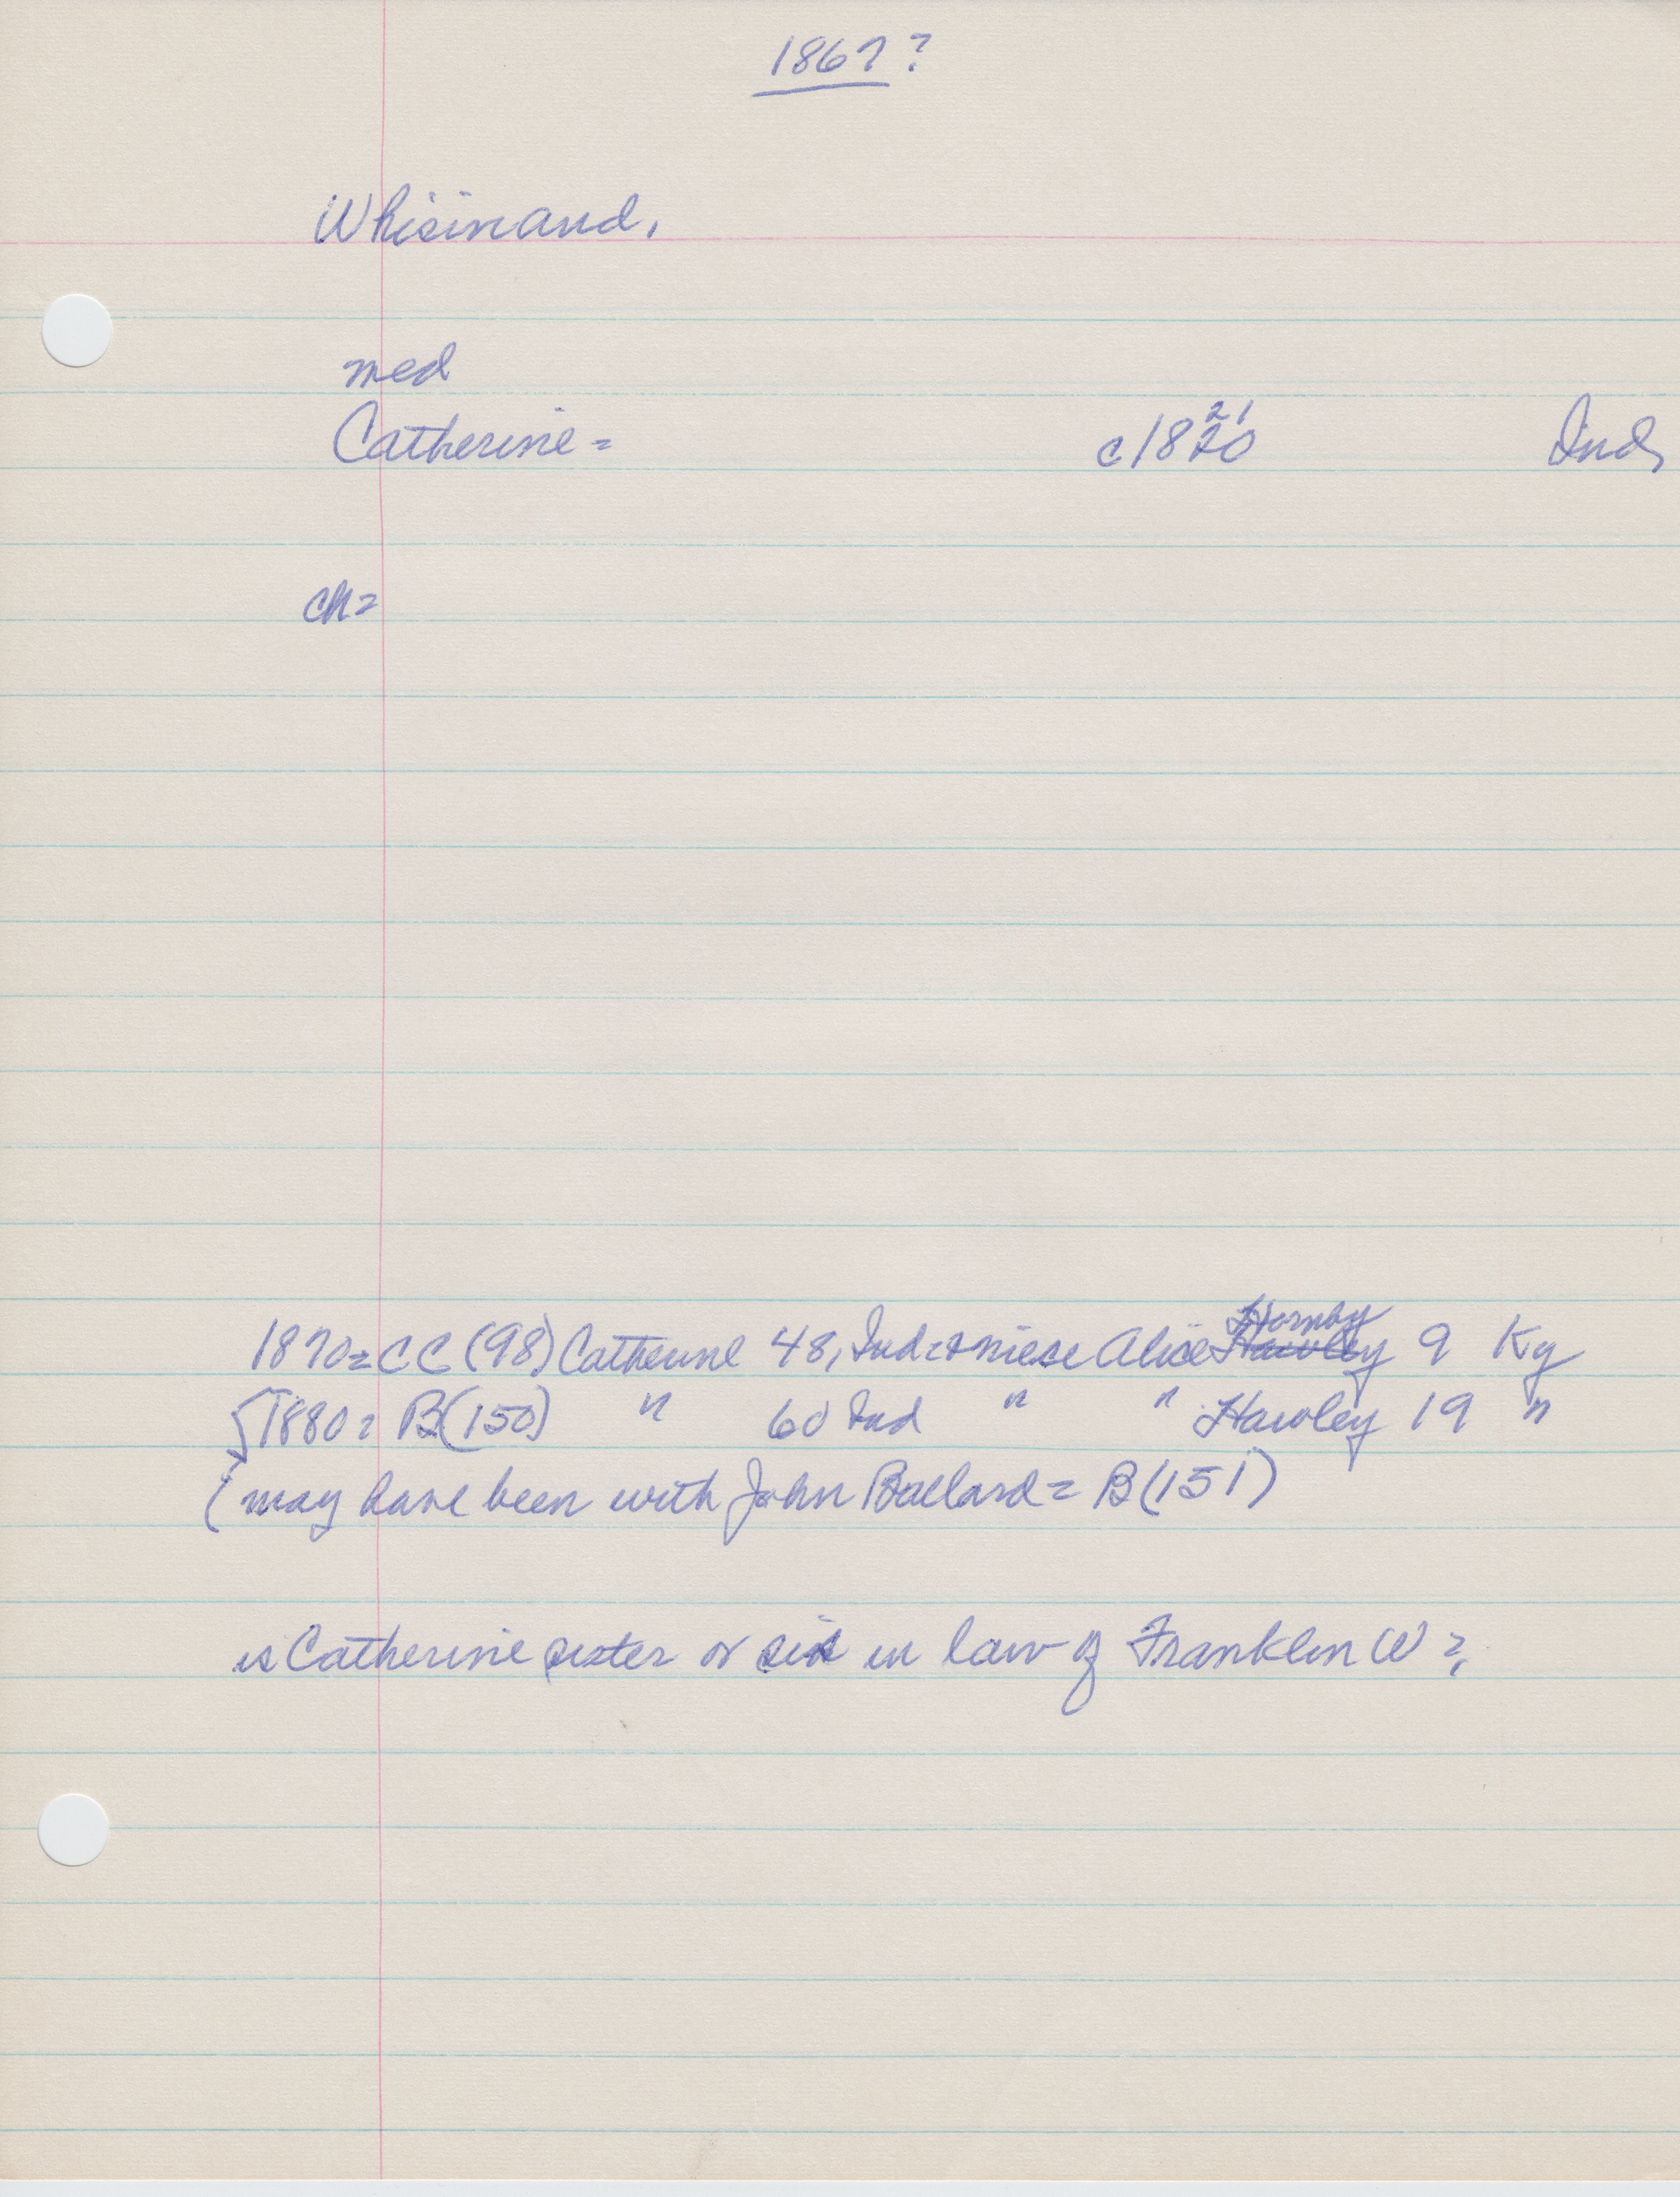 1867?
Whisinand,
med
Catherine =
21
c1820
Ind,
ch=
Hornby
1870= CC (98) Catherine 48, Ind = & niese Alice Hawley 9 Ky
1880= B(150) " 60 Ind " " Hawley 19 "
(may have been with John Ballard = B(151)
is Catherine sister or sis in law of Franklin W?,